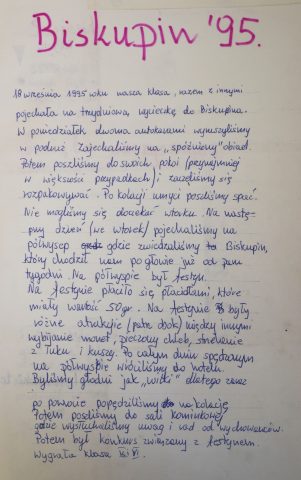 Biskupin '95.
18 września 1995 roku nasza klasa, razem z innymi
pojechała na trzydniową wycieczkę do Biskupina.
W poniedziałek dwoma autokarami wyruszyliśmy
w podróż Zajechaliśmy na „spóźniony" obiad.
Potem poszliśmy do swoich pokoi (przynajmniej
w większości przypadkach) i zaczęliśmy się
rozpakowywać. Po kolacji umyci poszliśmy spać.
Nie mogliśmy się doczekać wtorku. Na nastę-
pny dzień (we wtorek) pojechaliśmy na
półwysep gdzie zwiedzaliśmy Biskupin,
który chodził nam po głowie już od paru
tygodni. Na półwyspie był festyn.
Na festynie płaciło się placidłami, które
miały wartość 50gr. Na festynie były
różne atrakcje (patrz obok) między innymi
wybijanie monet, pieczony chleb, strzelanie
z łuku i kuszy. Po całym dniu spędzonym
na półwyspie wróciliśmy do hotelu.
Byliśmy głodni jak „wilki" dlatego zaraz
po powrocie popędziliśmy na kolację
Potem poszliśmy do sali kominkowej,
gdzie wysłuchaliśmy uwag i rad od wychowawców.
Potem był konkurs związany z festynem.
Wygrała klasa